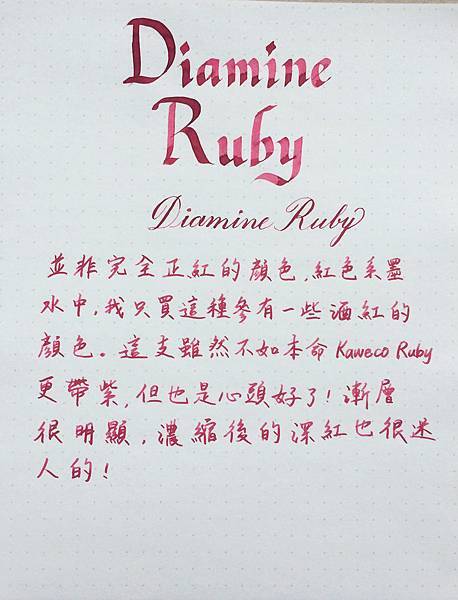 Diamine
Ruby
Diamine Ruby
並非完全正紅的顏色,紅色系墨
水中,我只買這種參有一些酒紅的
顏色。這支雖然不如本命 Kaweco Ruby
更帶紫,但也是心頭好了!漸層
很明顯,濃縮後的深紅也很迷
人的!